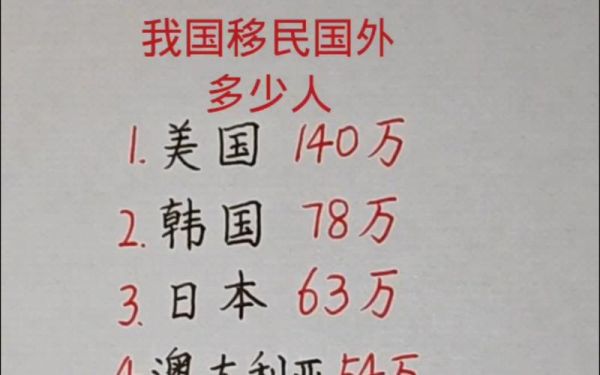 我国移民国外
多少人
1.美国 140万
2.韩国 78万
3.日本 63万
4.澳大利亚54万